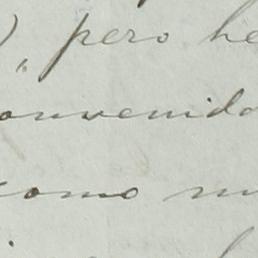 ), pero he
onvenido
como